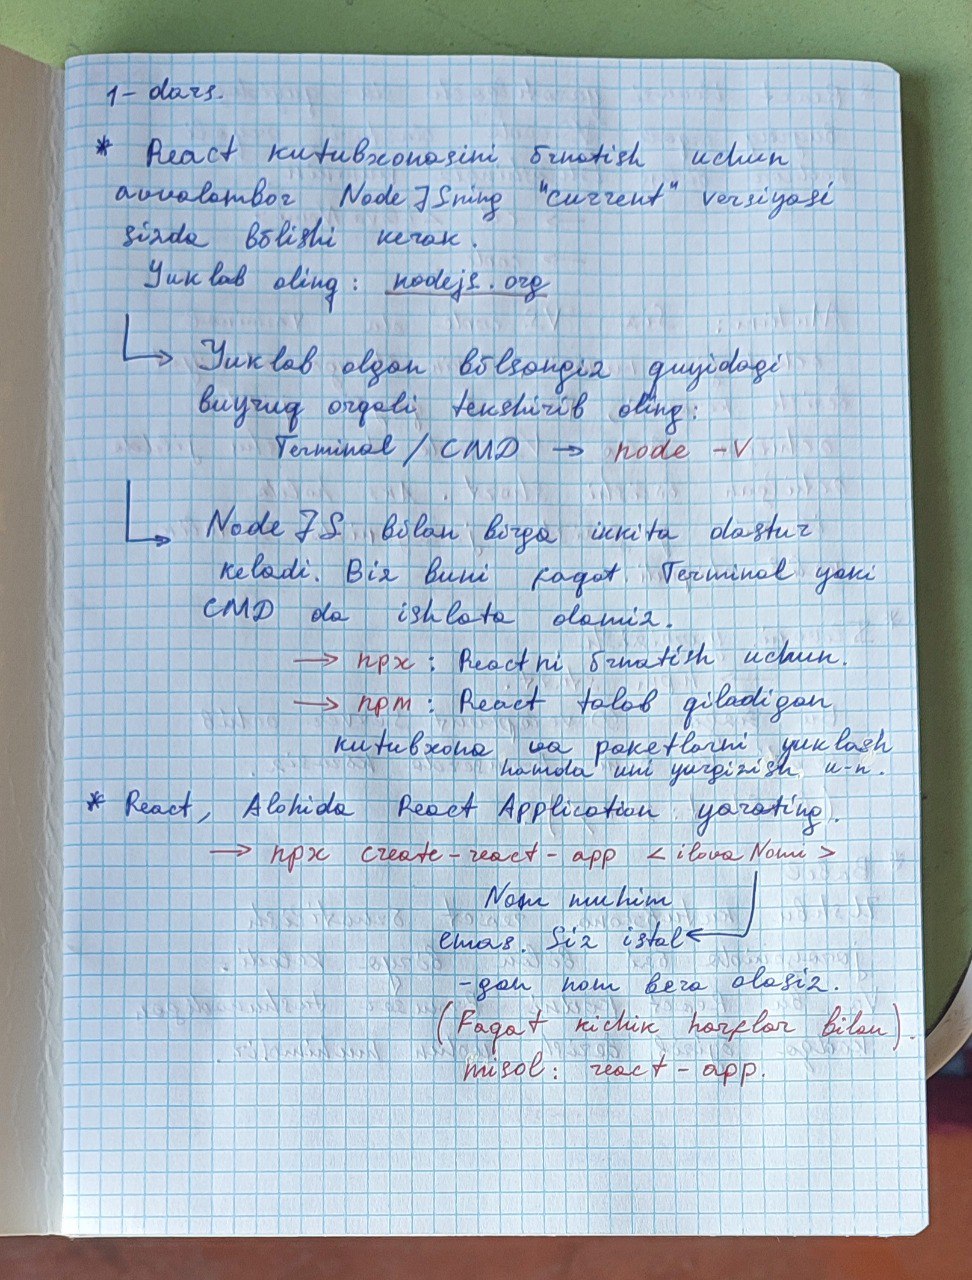 1-dars.
* React kutubxonasini õrnatish uchun
avvalambor Node JSning "current" versiyasi
sizda bõlishi kerak.
Yuklab oling: nodejs.org
Yuklab olgan bõlsangiz quyidagi
buyruq orqali tekshirib oling:
Terminal / CMD → node -v
Node JS bilan birga ikkita dastur
keladi. Biz buni faqat Terminal yoki
CMD da ishlata olamiz.
→ npx: Reactni õrnatish uchun.
→ npm: React talab qiladigan
kutubxona va paketlarni yuklash
hamda uni yurgizish u-n.
* React, Alohida React Application yarating.
→ npx create-react-app <ilova Nomi>
Nom muhim
emas. Siz istal
-gan nom bera olasiz.
(Faqat kichik harflar bilan).
misol: react-app.